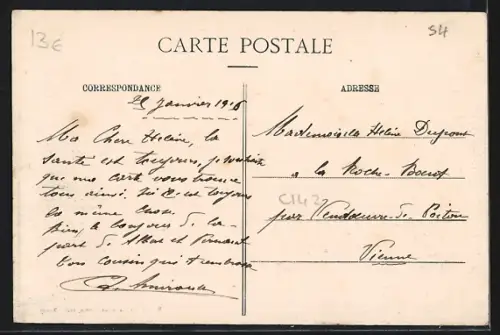 13€
54
CARTE POSTALE
CORRESPONDANCE
ADRESSE
janvier 1916
Ma Chere Helène, la
santé est toujours, je souhaite
que ma carte vous trouve
tous ainsi. Ici c'est toujours
la même chose.
Bien le bonjours de la
part de et
Ton cousin qui t'embrasse
Mademoiselle Helène Dupont
a la Roche
C142
par Vendeuvre-du-Poitou
Vienne